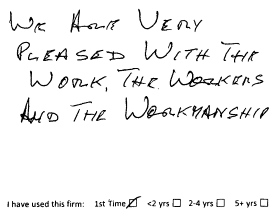 WE ARE VERY
PLEASED WITH THE
WORK, THE WORKERS
AND THE WORKMANSHIP
I have used this firm: 1st Time ☑ <2 yrs ☐ 2-4 yrs ☐ 5+ yrs ☐